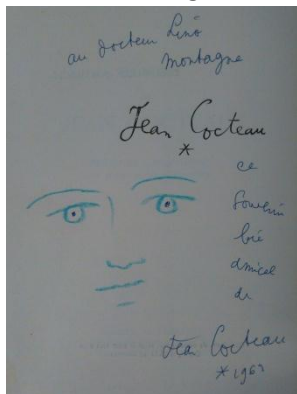 au docteur Lino
Montagne
Jean Cocteau
*
ce
souvenir
bié
amical
de
Jean Cocteau
* 1963